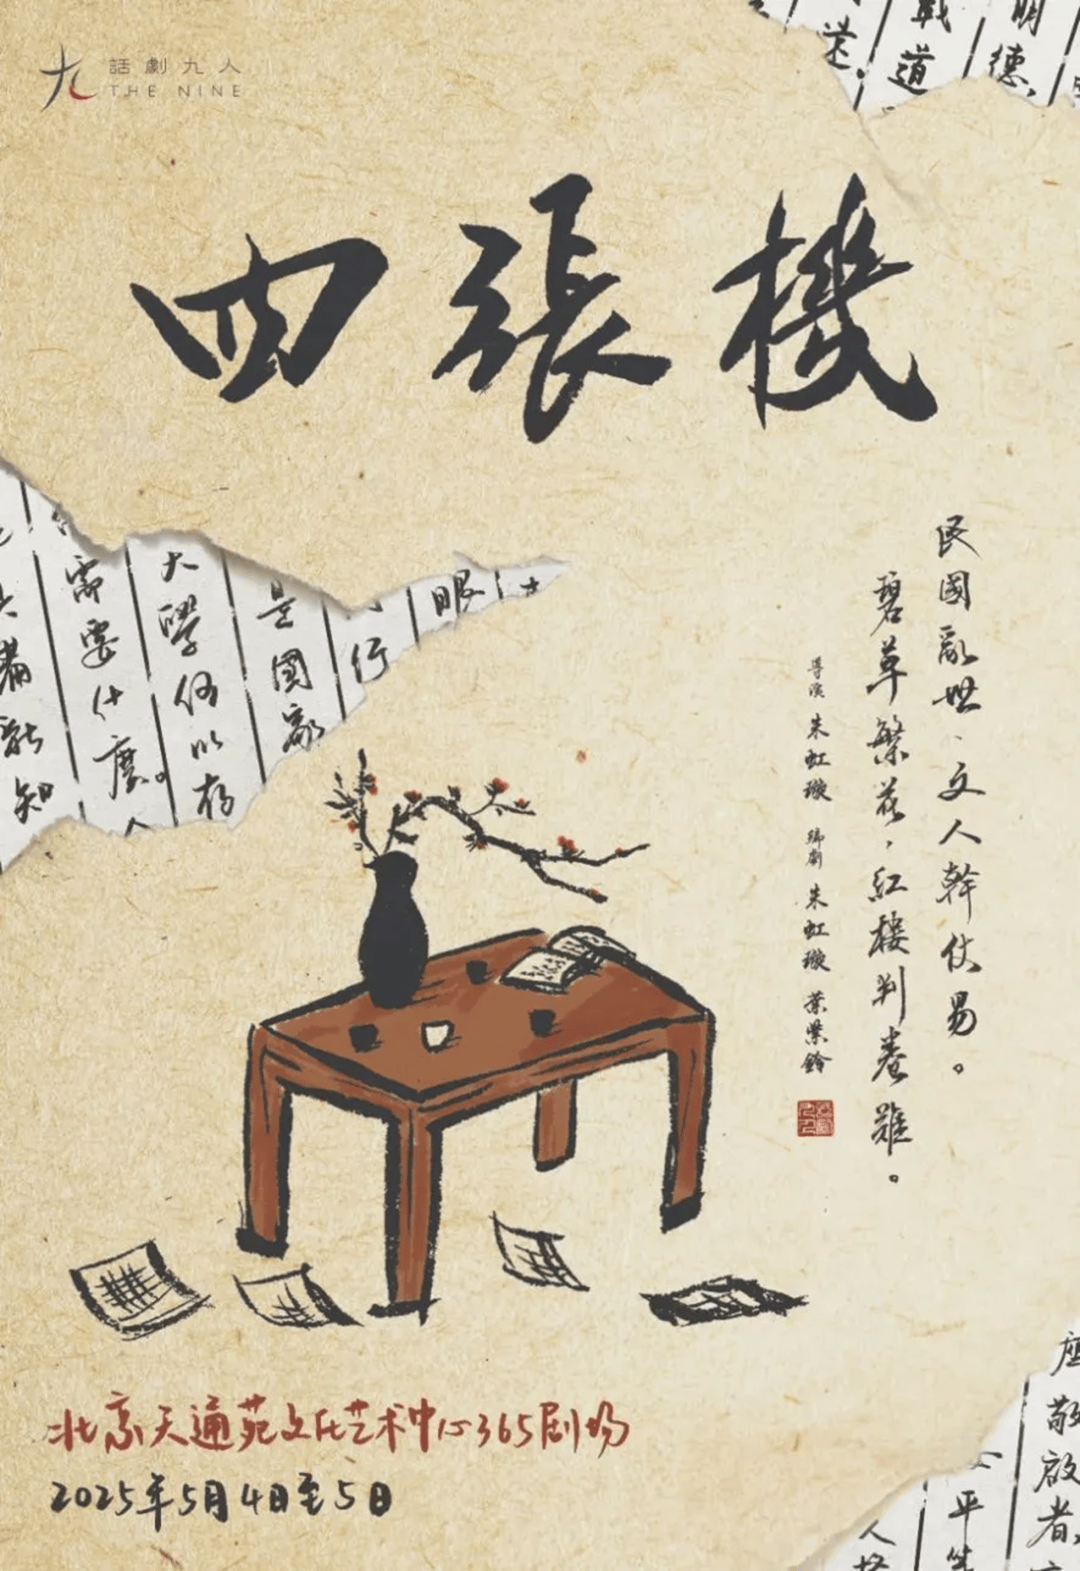 話劇九人
THE NINE
四張機
民國亂世、文人幹仗易。
碧草繁花，紅樓判卷難。
導演 朱虹璇 編劇 朱虹璇 葉紫鈴
戰道
明德，
需要什麼。人
大學何以存
是國家
行
眼
北京天通苑文化艺术中心365剧场
2025年5月4日至5日
座
敬啟者，
平生
人格